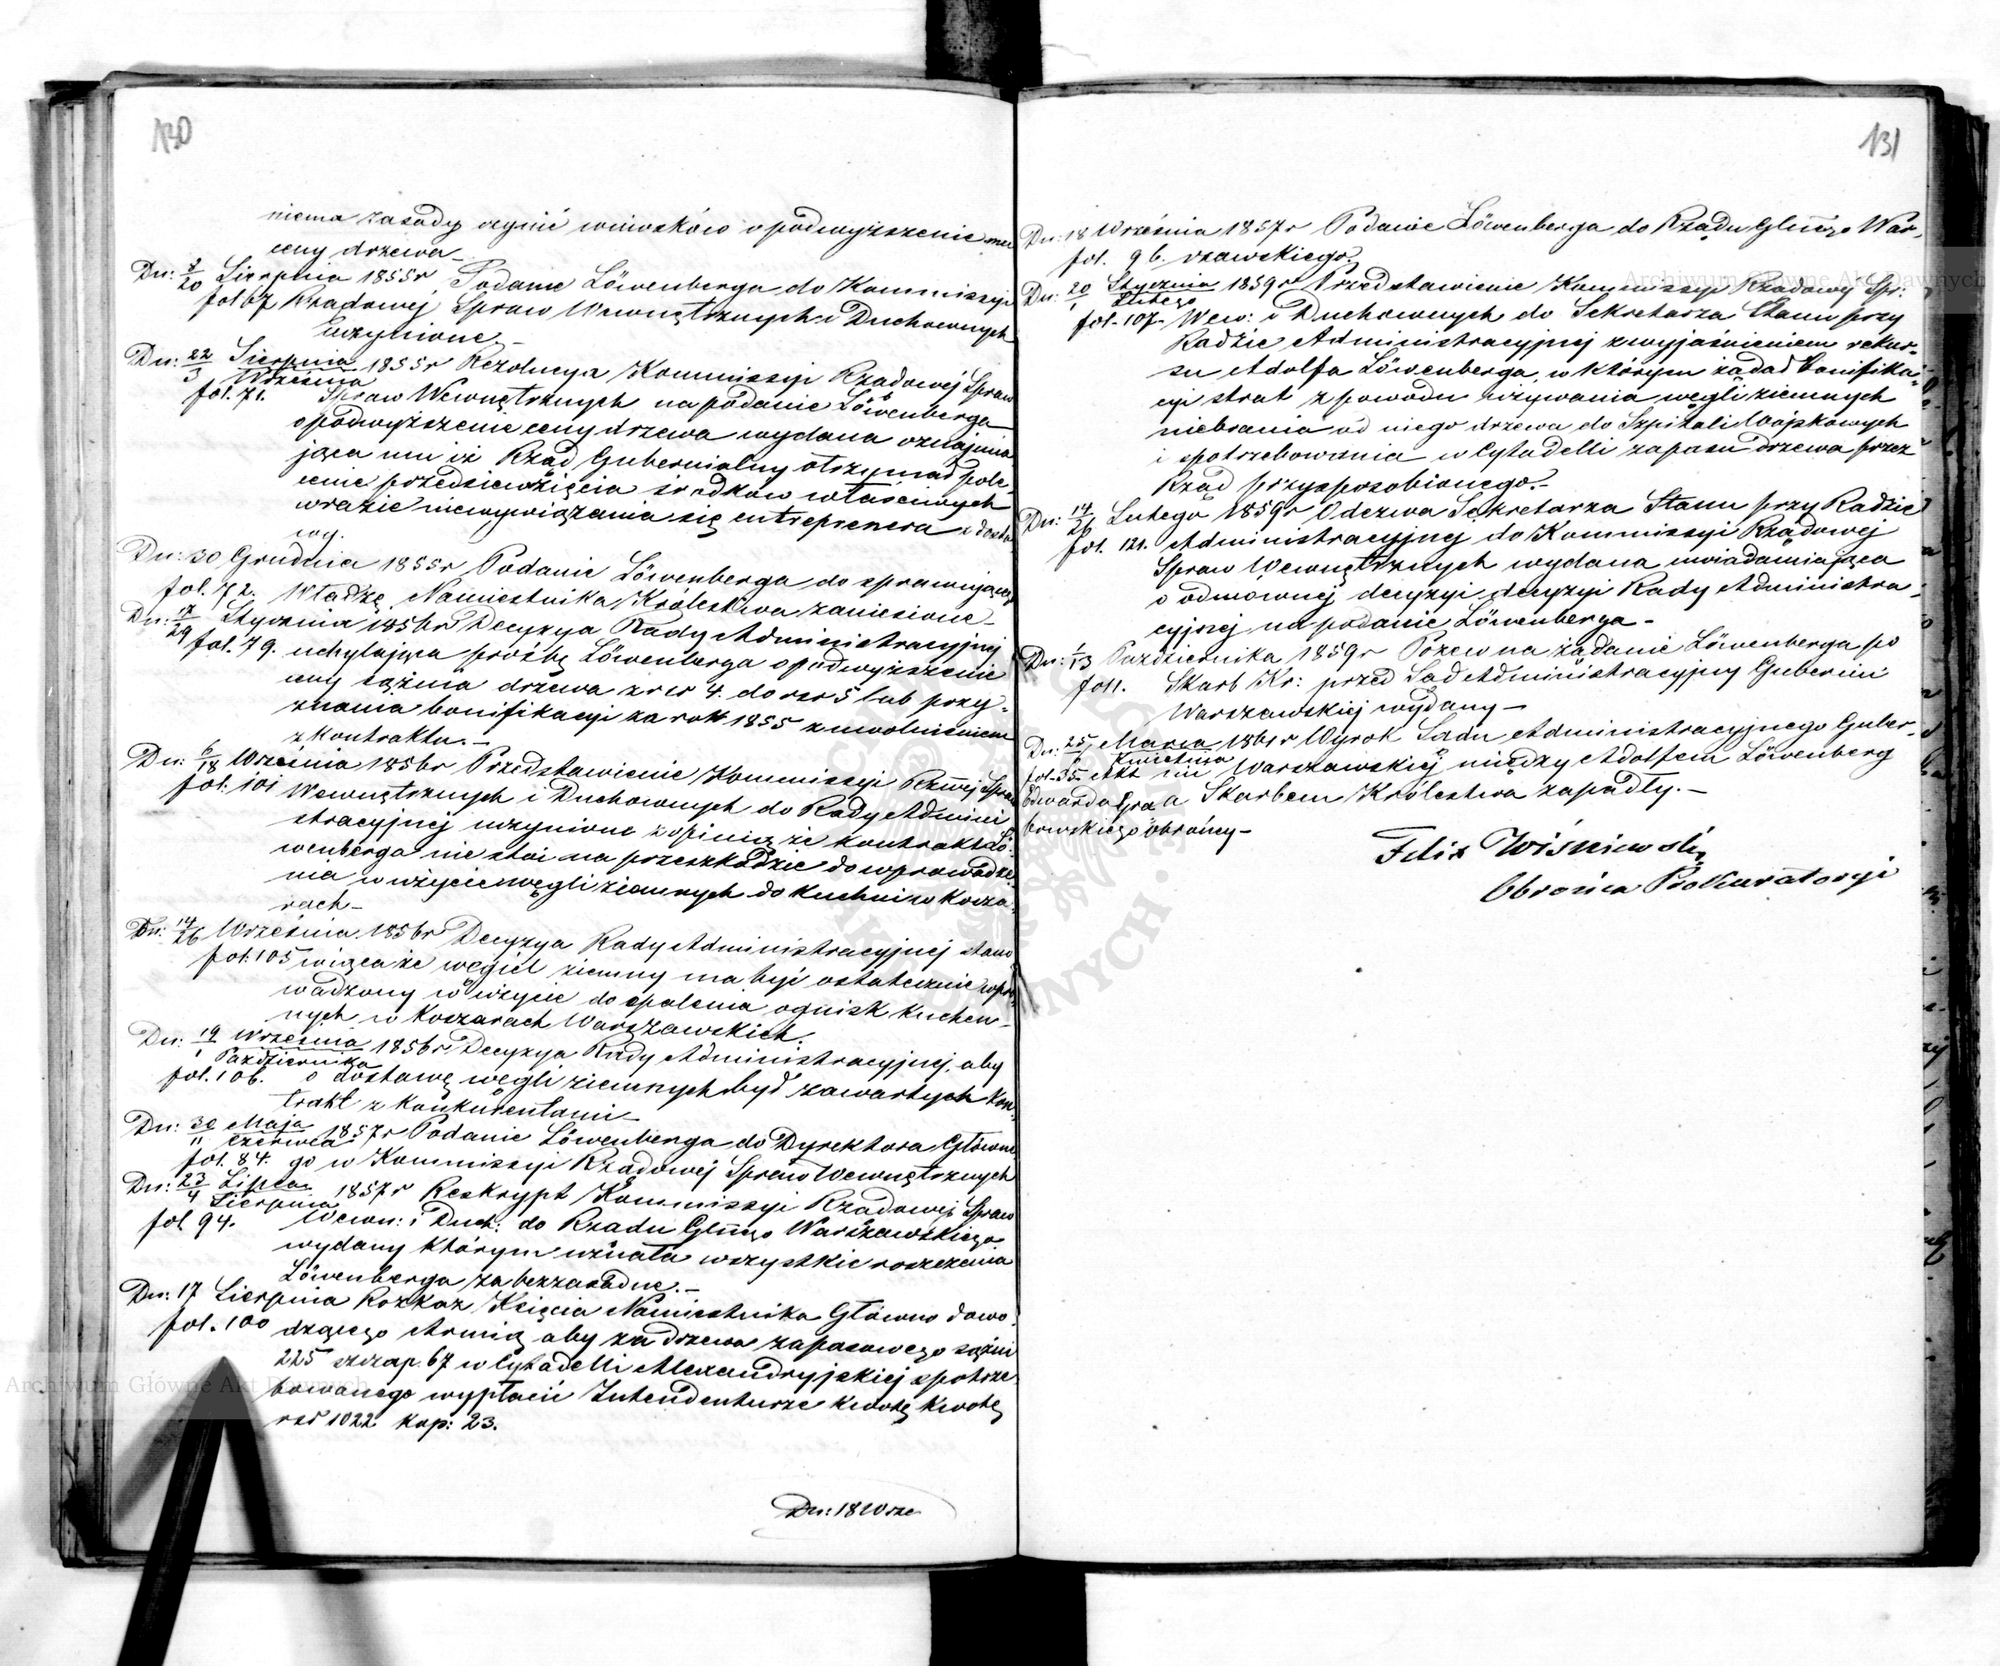 130
niema zasady czynić wniosków o podwyższenie mu
ceny drzewa –
Dn: 8/20 Sierpnia 1855r Podanie Löwenberga do Kommissyi
fol 67 Rządowej Spraw Wewnętrznych i Duchownych
uczynione. –
Dn: 22/3 Sierpnia/Września 1855r Rezolucya Kommissyi Rządowej Spraw
fol. 71. Spraw Wewnętrznych na podanie Löwenberga
o podwyższenie ceny drzewa wydana oznajmia
jąca mu iż Rząd Gubernialny otrzymał pole-
cenie przedsiewzięcia środków właściwych
wrazie niewywiązania się entreprenera z dosta
wy.
Dn: 30 Grudnia 1855r Podanie Löwenberga do sprawującego
fol. 72. Władzę Namiestnika Królestwa zaniesione –
Dn: 17/29 Stycznia 1856r Decyzya Rady Administracyjnej
fol. 79. uchylająca prośbę Löwenberga o podwyższenie
ceny sążnia drzewa z rsr 4. do rsr 5 lub przy-
znania bonifikacyi za rok 1855 z uwolnieniem
z kontraktu. –
Dn: 6/18 Września 1856r Przedstawienie Kommissyi Rząwej Spraw
fol. 101 Wewnętrznych i Duchownych do Rady Admini
stracyjnej uczynione z opinią że kontrakt Lö-
wenberga nie stoi na przeszkodzie do wprowadze
nia w użycie węgli ziemnych do kuchni w Kosza-
rach –
Dn: 14/26 Września 1856r Decyzya Rady Administracyjnej stano
fol. 105 wiąca że węgiel ziemny ma być ostatecznie wpro-
wadzony w użycie do opalania ognisk kuchen-
nych w Koszarach Warszawskich.
Dn: 19/1 Września/Października 1856r Decyzya Rady Administracyjnej, aby
fol. 106. o dostawę węgli ziemnych był zawartych kon-
trakt z konkurentami –
Dn: 30/11 Maja/Czerwca 1857r Podanie Löwenberga do Dyrektora Główne
fol. 84. go w Kommissyi Rządowej Spraw Wewnętrznych
Dn: 23/4 Lipca/Sierpnia 1857r Reskrypt Kommissyi Rządowej Spraw
fol 94. Wewn: i Duch: do Rządu Glnego Warszawskiego
wydany którym uznała wszystkie roszczenia
Löwenberga za bezzasadne. –
Dn: 17 Sierpnia Rozkaz Księcia Namiestnika Główno dowo-
fol. 100 dzącego Armią aby za drzewa zapasowego sążni
225 szczap 67 w Cytadelli Alexandryjskiej spotrze-
bowanego wypłacić Intendenturze kwotę kwotę
rsr 1022 kop: 23.
Dn: 18 Wrze
131
Dn: 18 Września 1857r Podanie Löwenberga do Rządu Glnego War-
fol. 96. szawskiego
Dn: 20/1 Stycznia/Lutego 1859r Przedstawienie Kommissyi Rządowy Spr:
fol. 107. Wew: i Duchownych do Sekretarza Stanu przy
Radzie Administracyjnej z wyjaśnieniem rekur-
su Adolfa Löwenberga, w którym żądał bonifika-
cyi strat z powodu używania węgli ziemnych
niebrania od niego drzewa do Szpitali Wojskowych
i spotrzebowania w Cytadelli zapasu drzewa przez
Rząd przysposobionego. –
Dn: 14/26 Lutego 1859r Odezwa Sekretarza Stanu przy Radzie
fol. 121. Administracyjnej do Kommissyi Rządowej
Spraw Wewnętrznych wydana uwiadamiająca
o odmownej decyzyi decyzyi Rady Administra-
cyjnej na podanie Löwenberga –
Dn: 1/13 Października 1859r Pozew na żądanie Löwenberga po
fol1. Skarb Kr: przed Sąd Administracyjny Gubernii
Warszawskiej wydany –
Dn: 25/6 Marca/Kwietnia 1861r Wyrok Sądu Administracyjnego Guber-
fol. 35. Akt nii Warszawskiej między Adolfem Löwenberg
Edwarda Gra a Skarbem Królestwa zapadły. –
bowskiego Obrońcy –
Felix Wiśniewski
Obrońca Prokuratoryi
Archiwum Główne Akt Dawnych
Archiwum Główne Akt Dawnych